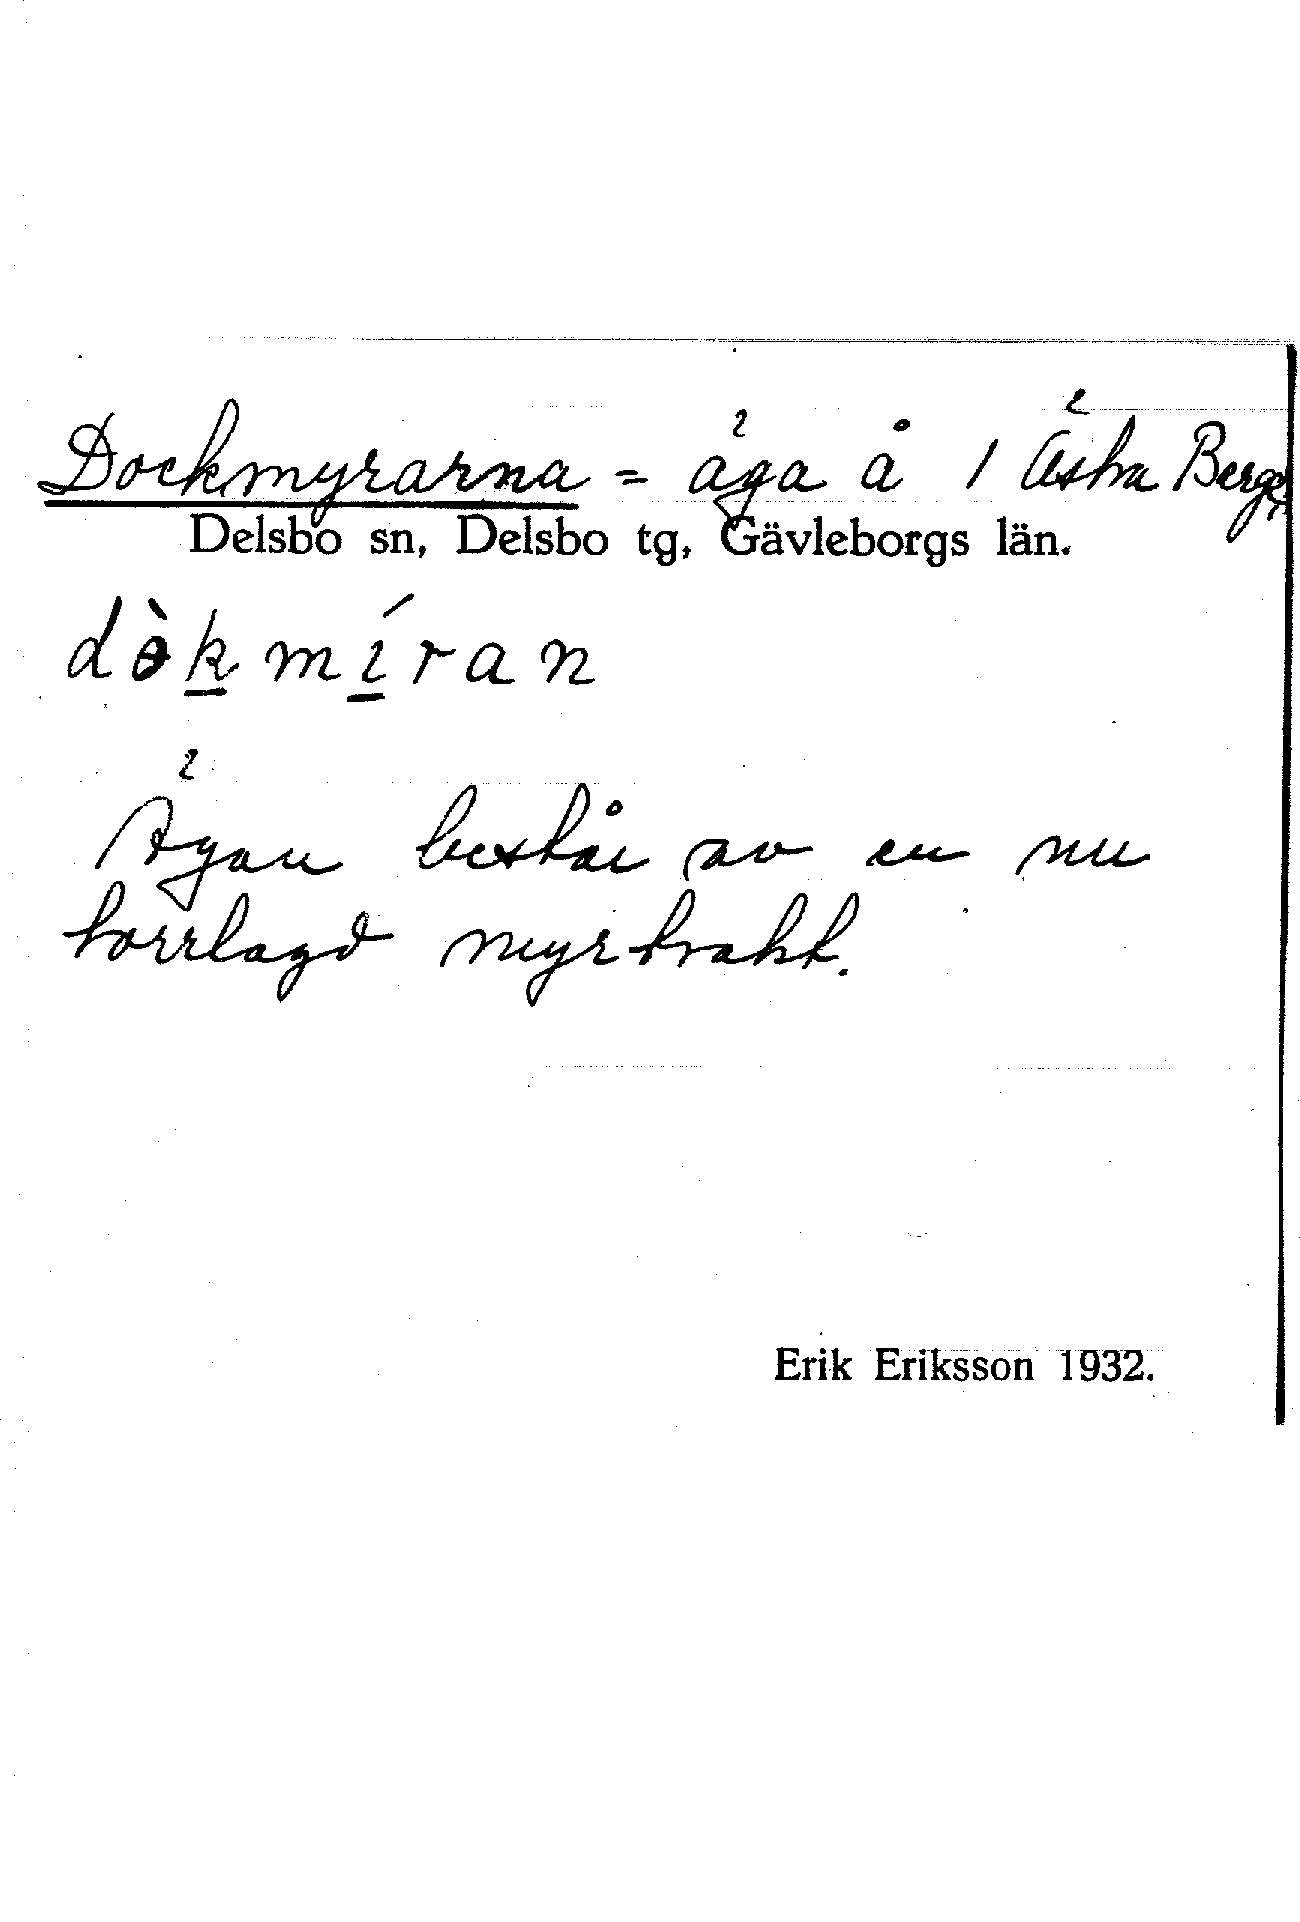 Dockmyrarna = äga å 1 Ästra Berge
Delsbo sn, Delsbo tg, Gävleborgs län.
dòkmíran
Ägan består av en nu
torrlagd myrtrakt.
Erik Eriksson 1932.